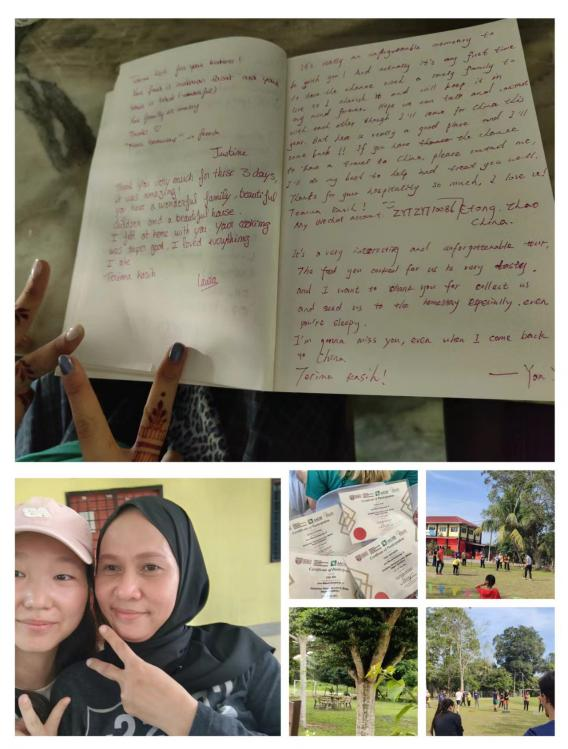 Terima kasih for your kindness!
Your food is
Your family is amazing
Thanks
Justine
Thank you very much for these 3 days,
it was amazing!
you have a wonderful family, beautiful
children and a beautiful house.
I felt at home with you your cooking
was super good, I loved everything
I ate
Terima Kasih
Laura
It's really an unforgettable memory to
be with you! And actually it's my first time
to have the chance with a lovely family to
live so I cherish it and will keep it in
my mind forever. Hope we can talk and
with each other though I'll come for China this
year. But here is really a good place and I'll
come back!! If you have the chance
to have a travel to China, please contact me,
I'll do my best to help and treat you well.
Thanks for your hospitality so much, I love u!
Terima Kasih!
My wechat account
Zhao
China.
It's a very interesting and unforgettable tour.
The food you cooked for us is very tasty.
and I want to thank you for collect us
and send us to the homestay especially even
you're sleepy.
I'm gonna miss you, even when I come back
to China.
Terima Kasih!
Certificate of Participation
Certificate of Participation